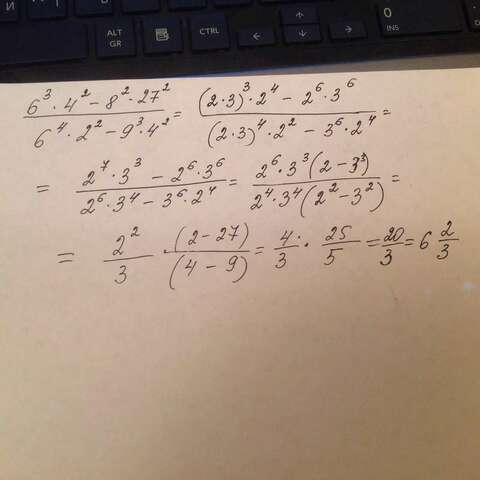 И
ALT GR
CTRL
0 INS
DEL
(6^3 · 4^2 - 8^2 · 27^2) / (6^4 · 2^2 - 9^3 · 4^2) = ((2·3)^3 · 2^4 - 2^6 · 3^6) / ((2·3)^4 · 2^2 - 3^6 · 2^4) =
= (2^7 · 3^3 - 2^6 · 3^6) / (2^6 · 3^4 - 3^6 · 2^4) = (2^6 · 3^3 (2 - 3^3)) / (2^4 · 3^4 (2^2 - 3^2)) =
= 2^2 / 3 · (2 - 27) / (4 - 9) = 4/3 · 25/5 = 20/3 = 6 2/3